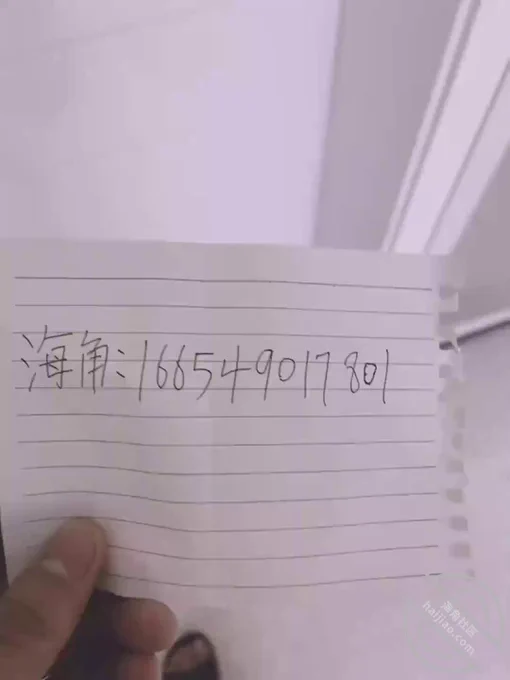 海角:166549017801
海角社区
haijiao.com